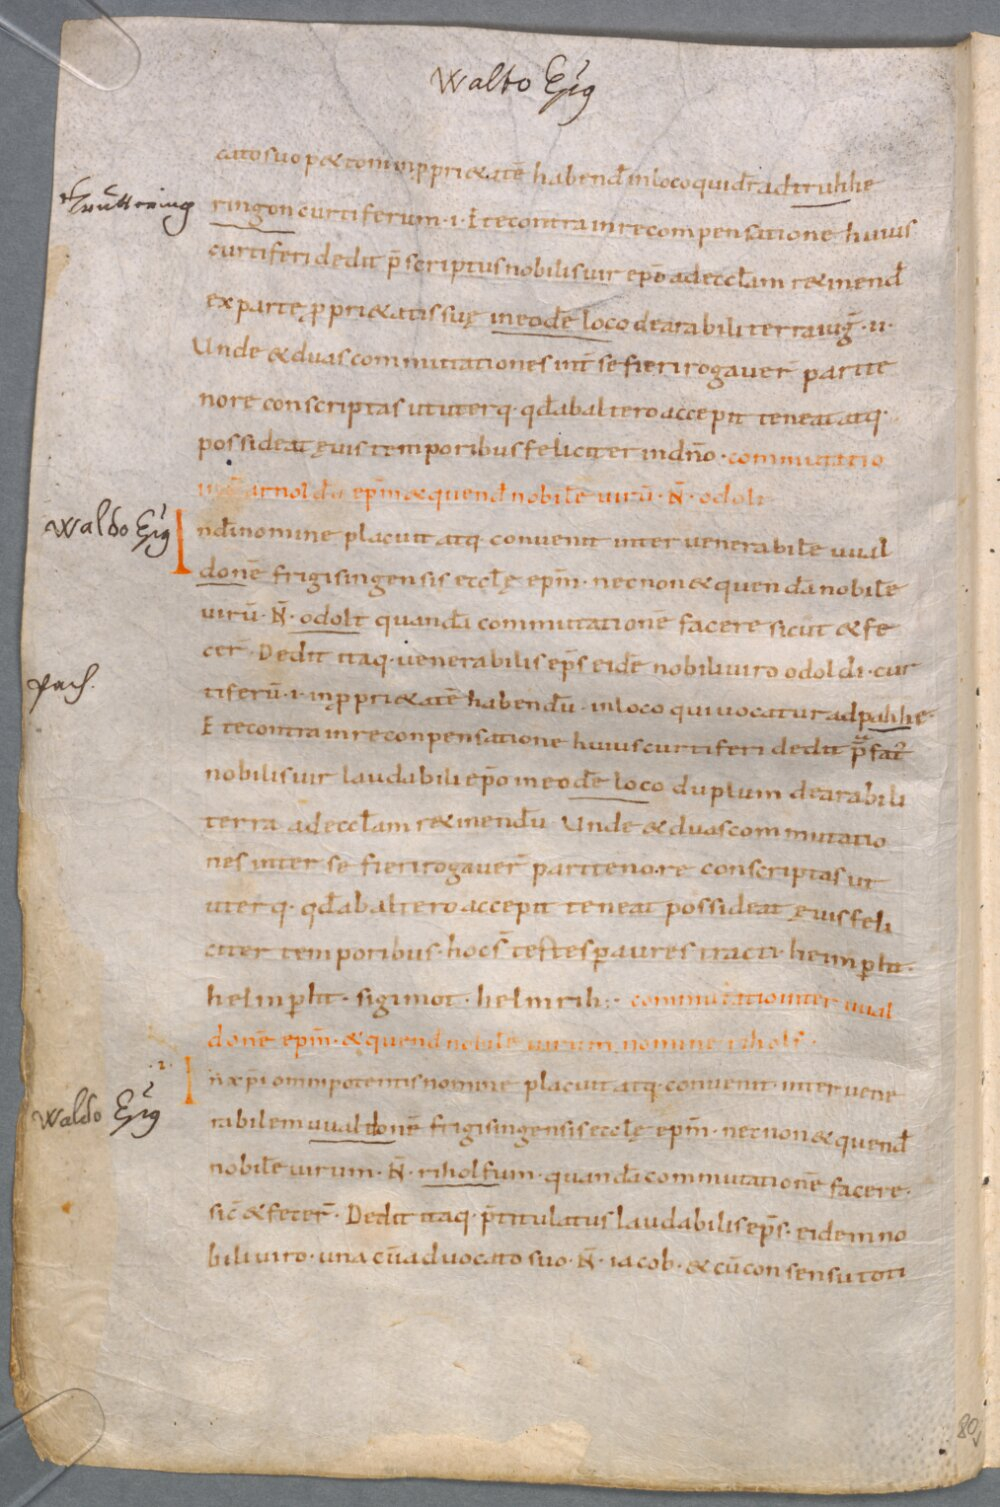 Waldo Ep̄s
catosuo p&tom inp̱pri&atē habend̄ inloco quidr̄ adtruhhe
Truttering
ringon curtiferum · i · E tecontra inrecompensatione huius
curtiferi dedit p̄scriptus nobilisuir ep̄o adeccl̄am r&inend̄
ex parte p̱pri&atis suę ineodē loco dearabili terra iug̅ · ii ·
Unde & duas commutationes int̄ se fieri rogaver̄ parite
nore conscriptas ut uterq · qd̄ abaltero accepit teneat atq ·
possideat ęuis temporibus feliciter indn̄o · commutatio
arnoldū ep̄m & quend̄ nobilē uirū · N̄ · odolt
Waldo Ep̄s
Ind̄inomine placuit atq convenit inter venerabilē uual
donē frigisingensis ecclę ep̄m · necnon & quendā nobilē
uirū · N̄ · odolt quandā commutationē facere sicut & fe
cer̄ · Dedit itaq · venerabilis ep̄s eidē nobili viro odoldi · cur
Pach.
tiferū · i · inp̱pri&atē habendū · inloco qui vocatur adpahhe ·
E tecontra inreconpensatione huius curtiferi dedit p̄fat̄
nobilisuir laudabili ep̄o ineodē loco duplum dearabili
terra adeccl̄am r&inendū · Unde & duas commutatio
nes inter se fieri rogaver̄ paritenore conscriptas ut
uterq · qd̄ abaltero accepit teneat possideat ęuis feli
citer temporibus · hocs̄ testes p̱ aures tracti · heimp̱ht ·
helmp̱ht · sigimot · helmrih :· commutatio inter uual
donē ep̄m · & quend nobilē uirum nomine riholf ·
· 2 ·
Inxp̄i omnipotentis nomine placuit atq · convenit · inter vene
Waldo Ep̄s
rabilem uualdonē frigisingensis ecclę ep̄m · necnon & quend̄
nobilē uirum · N̄ · riholfum · quandā commutationē facere ·
sic̄ & fecer̄ · Dedit itaq · p̄titulatus laudabilis ep̄s · eidem no
bili viro · una cū advocato suo · N̄ · iacob · & cū consensu toti
80